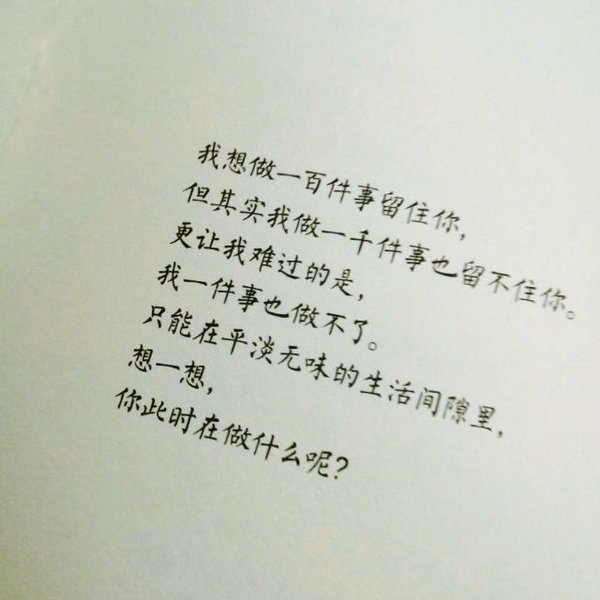 我想做一百件事留住你,
但其实我做一千件事也留不住你。
更让我难过的是,
我一件事也做不了。
只能在平淡无味的生活间隙里,
想一想,
你此时在做什么呢?